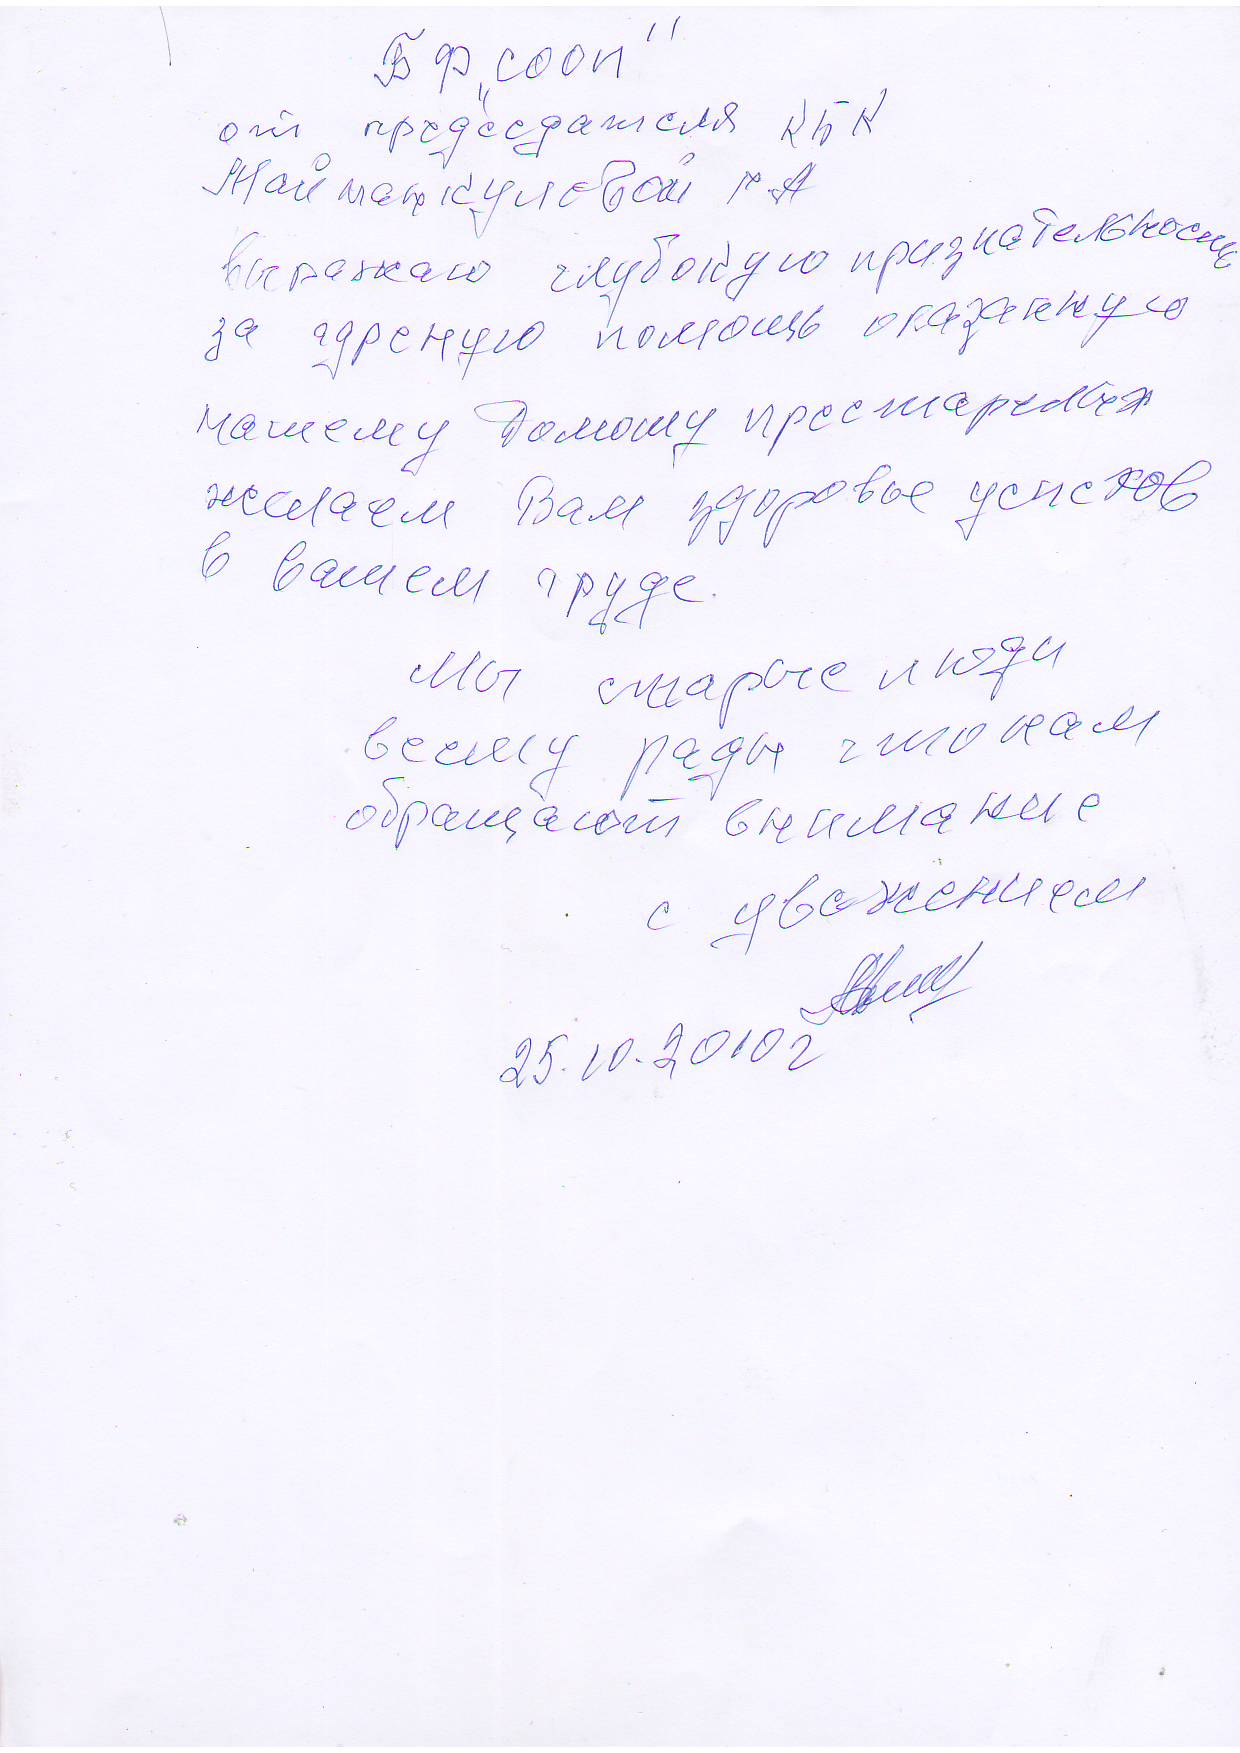 БФ „сооп"
от председателя КБК
Найманкуловой г А
выражаю глубокую признательность
за адресную помощь оказанную
нашему Домому престарелых
желаем Вам здоровье успехов
в вашем труде.
Мы старые люди
всему рады что к нам
обращают внимание
с уважением
25.10.2010г